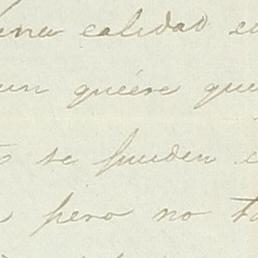 una calidad
un quiere que
se pueden
pero no